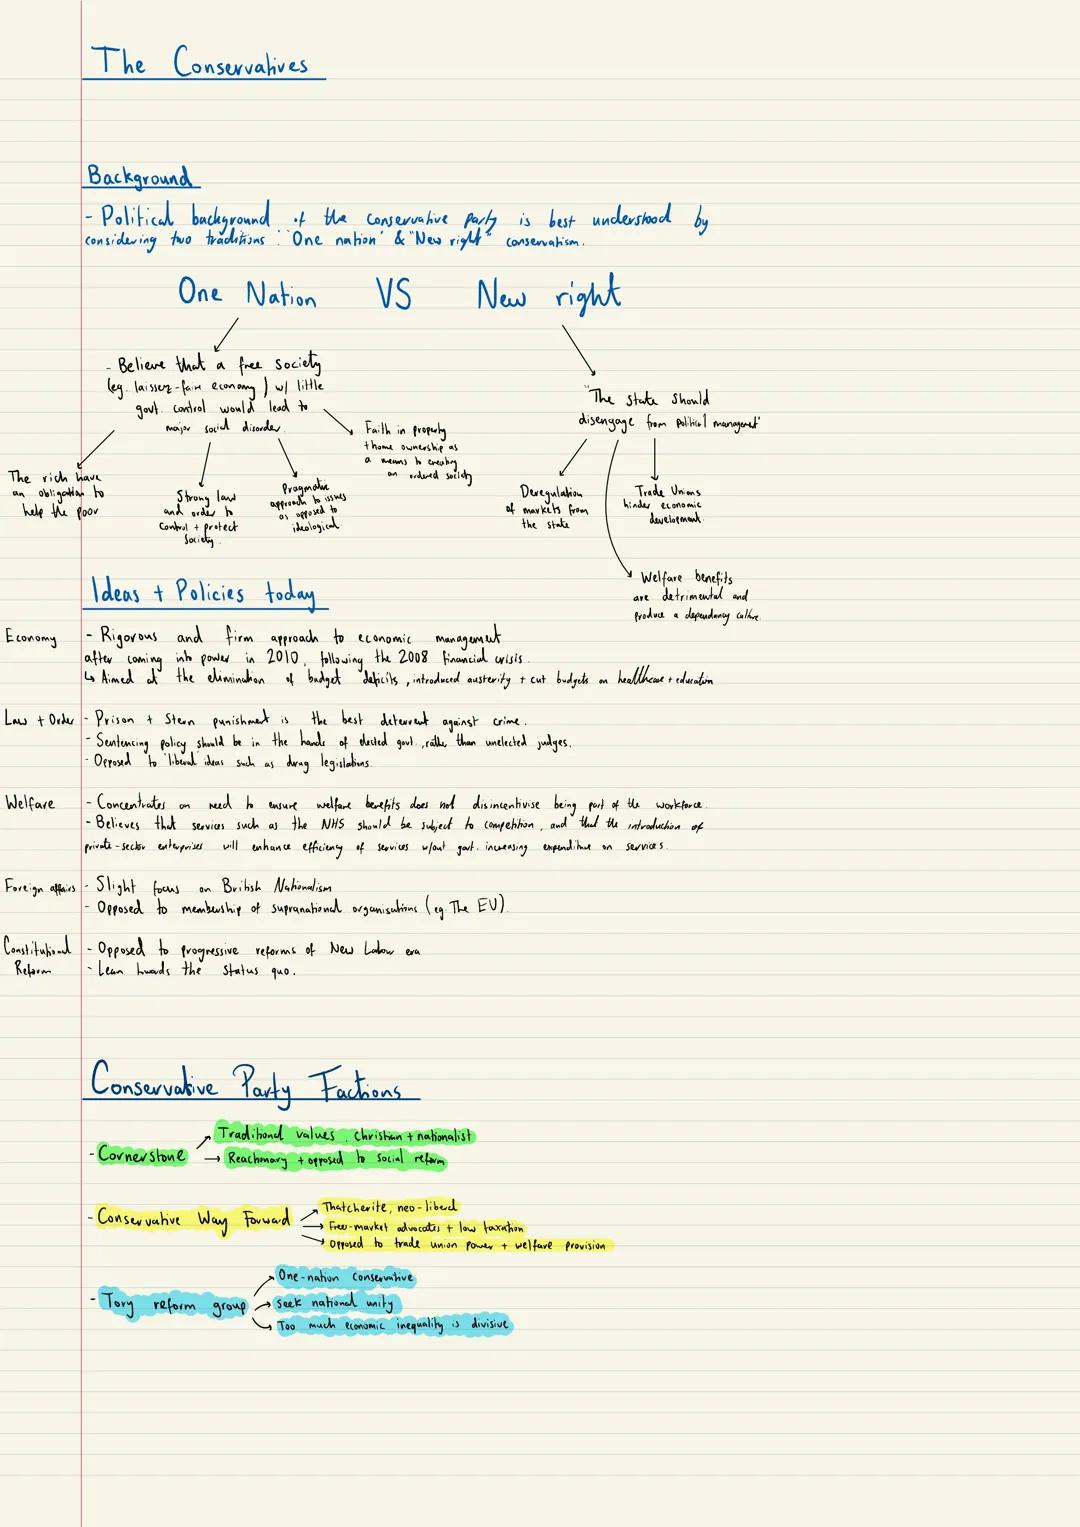 The Conservatives
Background
- Political background of the conservative party is best understood by
considering two traditions: "One nation" & "New right" conservatism.
One Nation VS New right
- Believe that a free society
(eg. laissez-faire economy) w/ little
govt. control would lead to
major social disorder.
The rich have
an obligation to
help the poor
Strong law
and order to
control + protect
society.
Pragmatic
approach to issues
as opposed to
ideological
Faith in property
+ home ownership as
a means to creating
an ordered society
"The state should
disengage from political management"
Deregulation
of markets from
the state
Trade Unions
hinder economic
development.
Welfare benefits
are detrimental and
produce a dependancy culture.
Ideas + Policies today
Economy - Rigorous and firm approach to economic management
after coming into power in 2010, following the 2008 financial crisis.
↳ Aimed at the elimination of budget deficits, introduced austerity + cut budgets on healthcare + education
Law + Order - Prison + Stern punishment is the best deterrent against crime.
- Sentencing policy should be in the hands of elected govt., rather than unelected judges.
- Opposed to 'liberal' ideas such as drug legislations.
Welfare - Concentrates on need to ensure welfare benefits does not disincentivise being part of the workforce.
- Believes that services such as the NHS should be subject to competition, and that the introduction of
private-sector enterprises will enhance efficiency of services w/out govt. increasing expenditure on services.
Foreign affairs - Slight focus on British Nationalism
- Opposed to membership of supranational organisations (eg. The EU).
Constitutional - Opposed to progressive reforms of New Labour era
Reform - Lean towards the status quo.
Conservative Party Factions
- Cornerstone → Traditional values, Christian + nationalist
→ Reactionary + opposed to social reform
- Conservative Way Forward → Thatcherite, neo-liberal
→ Free-market advocates + low taxation
→ Opposed to trade union power + welfare provision
- Tory reform group → One-nation conservative
→ Seek national unity
→ Too much economic inequality is divisive